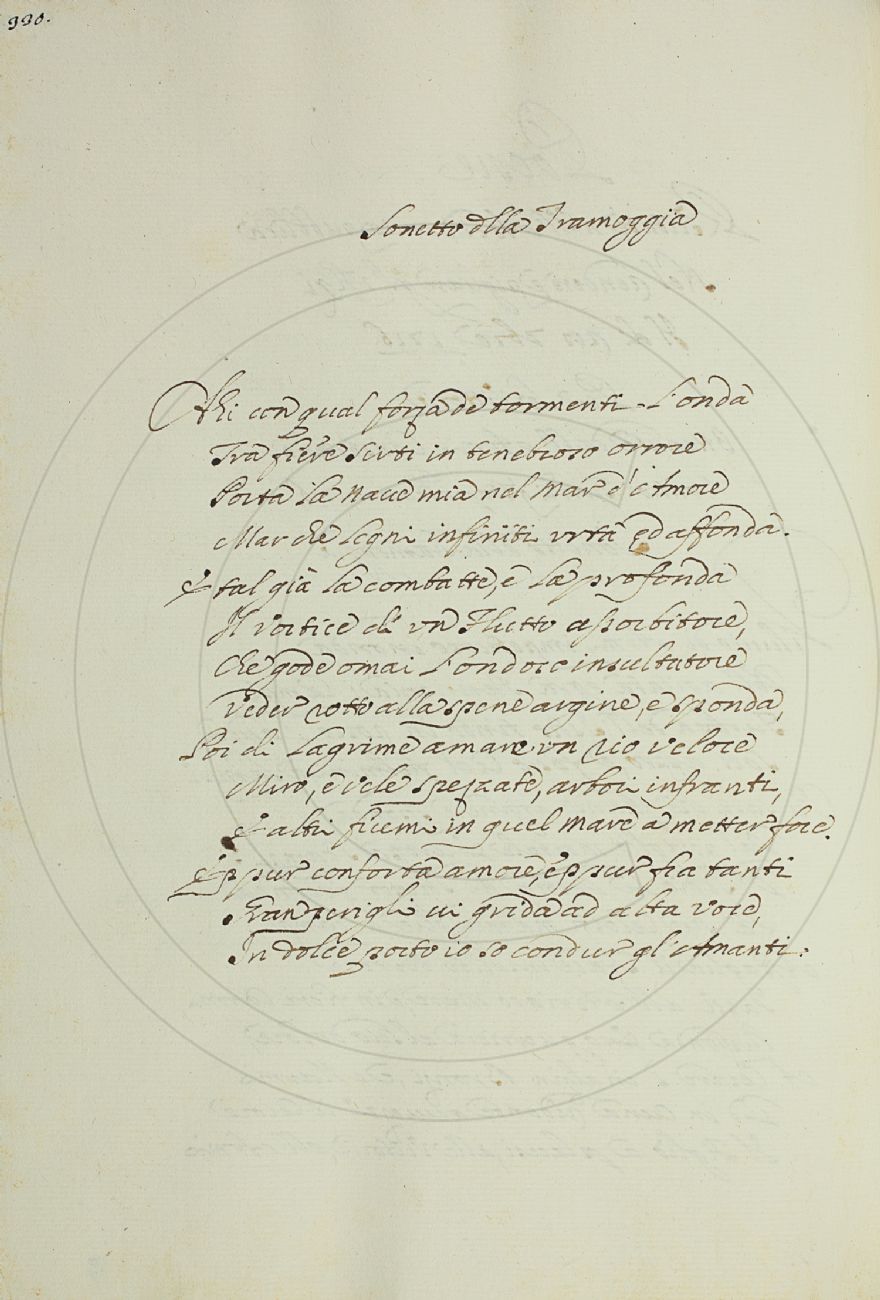 990.
Sonetto dlla Tramoggia
Ahi con qual forza de tormenti L'onda
Tra fiere Sirti in tenebroso orrore
Porta La Nave mia nel Mar d'Amore
Mar che Legni infiniti urta ed affonda.
E tal già La combatte, e La profonda
Il vortice di un Flutto assorbitore,
Che gode omai L'ondoso insultatore
Veder rotto alla spene argine, e sponda,
Poi di Lagrime amare un rio veloce
Miro, e vele spezzate, arbori infranti,
E altri fiumi in quel Mare a metter foce.
E pur conforta amore, e pur fia tanti
Gran perigli ei grida ad alta voce,
In dolce porto io so condur gl'Amanti.